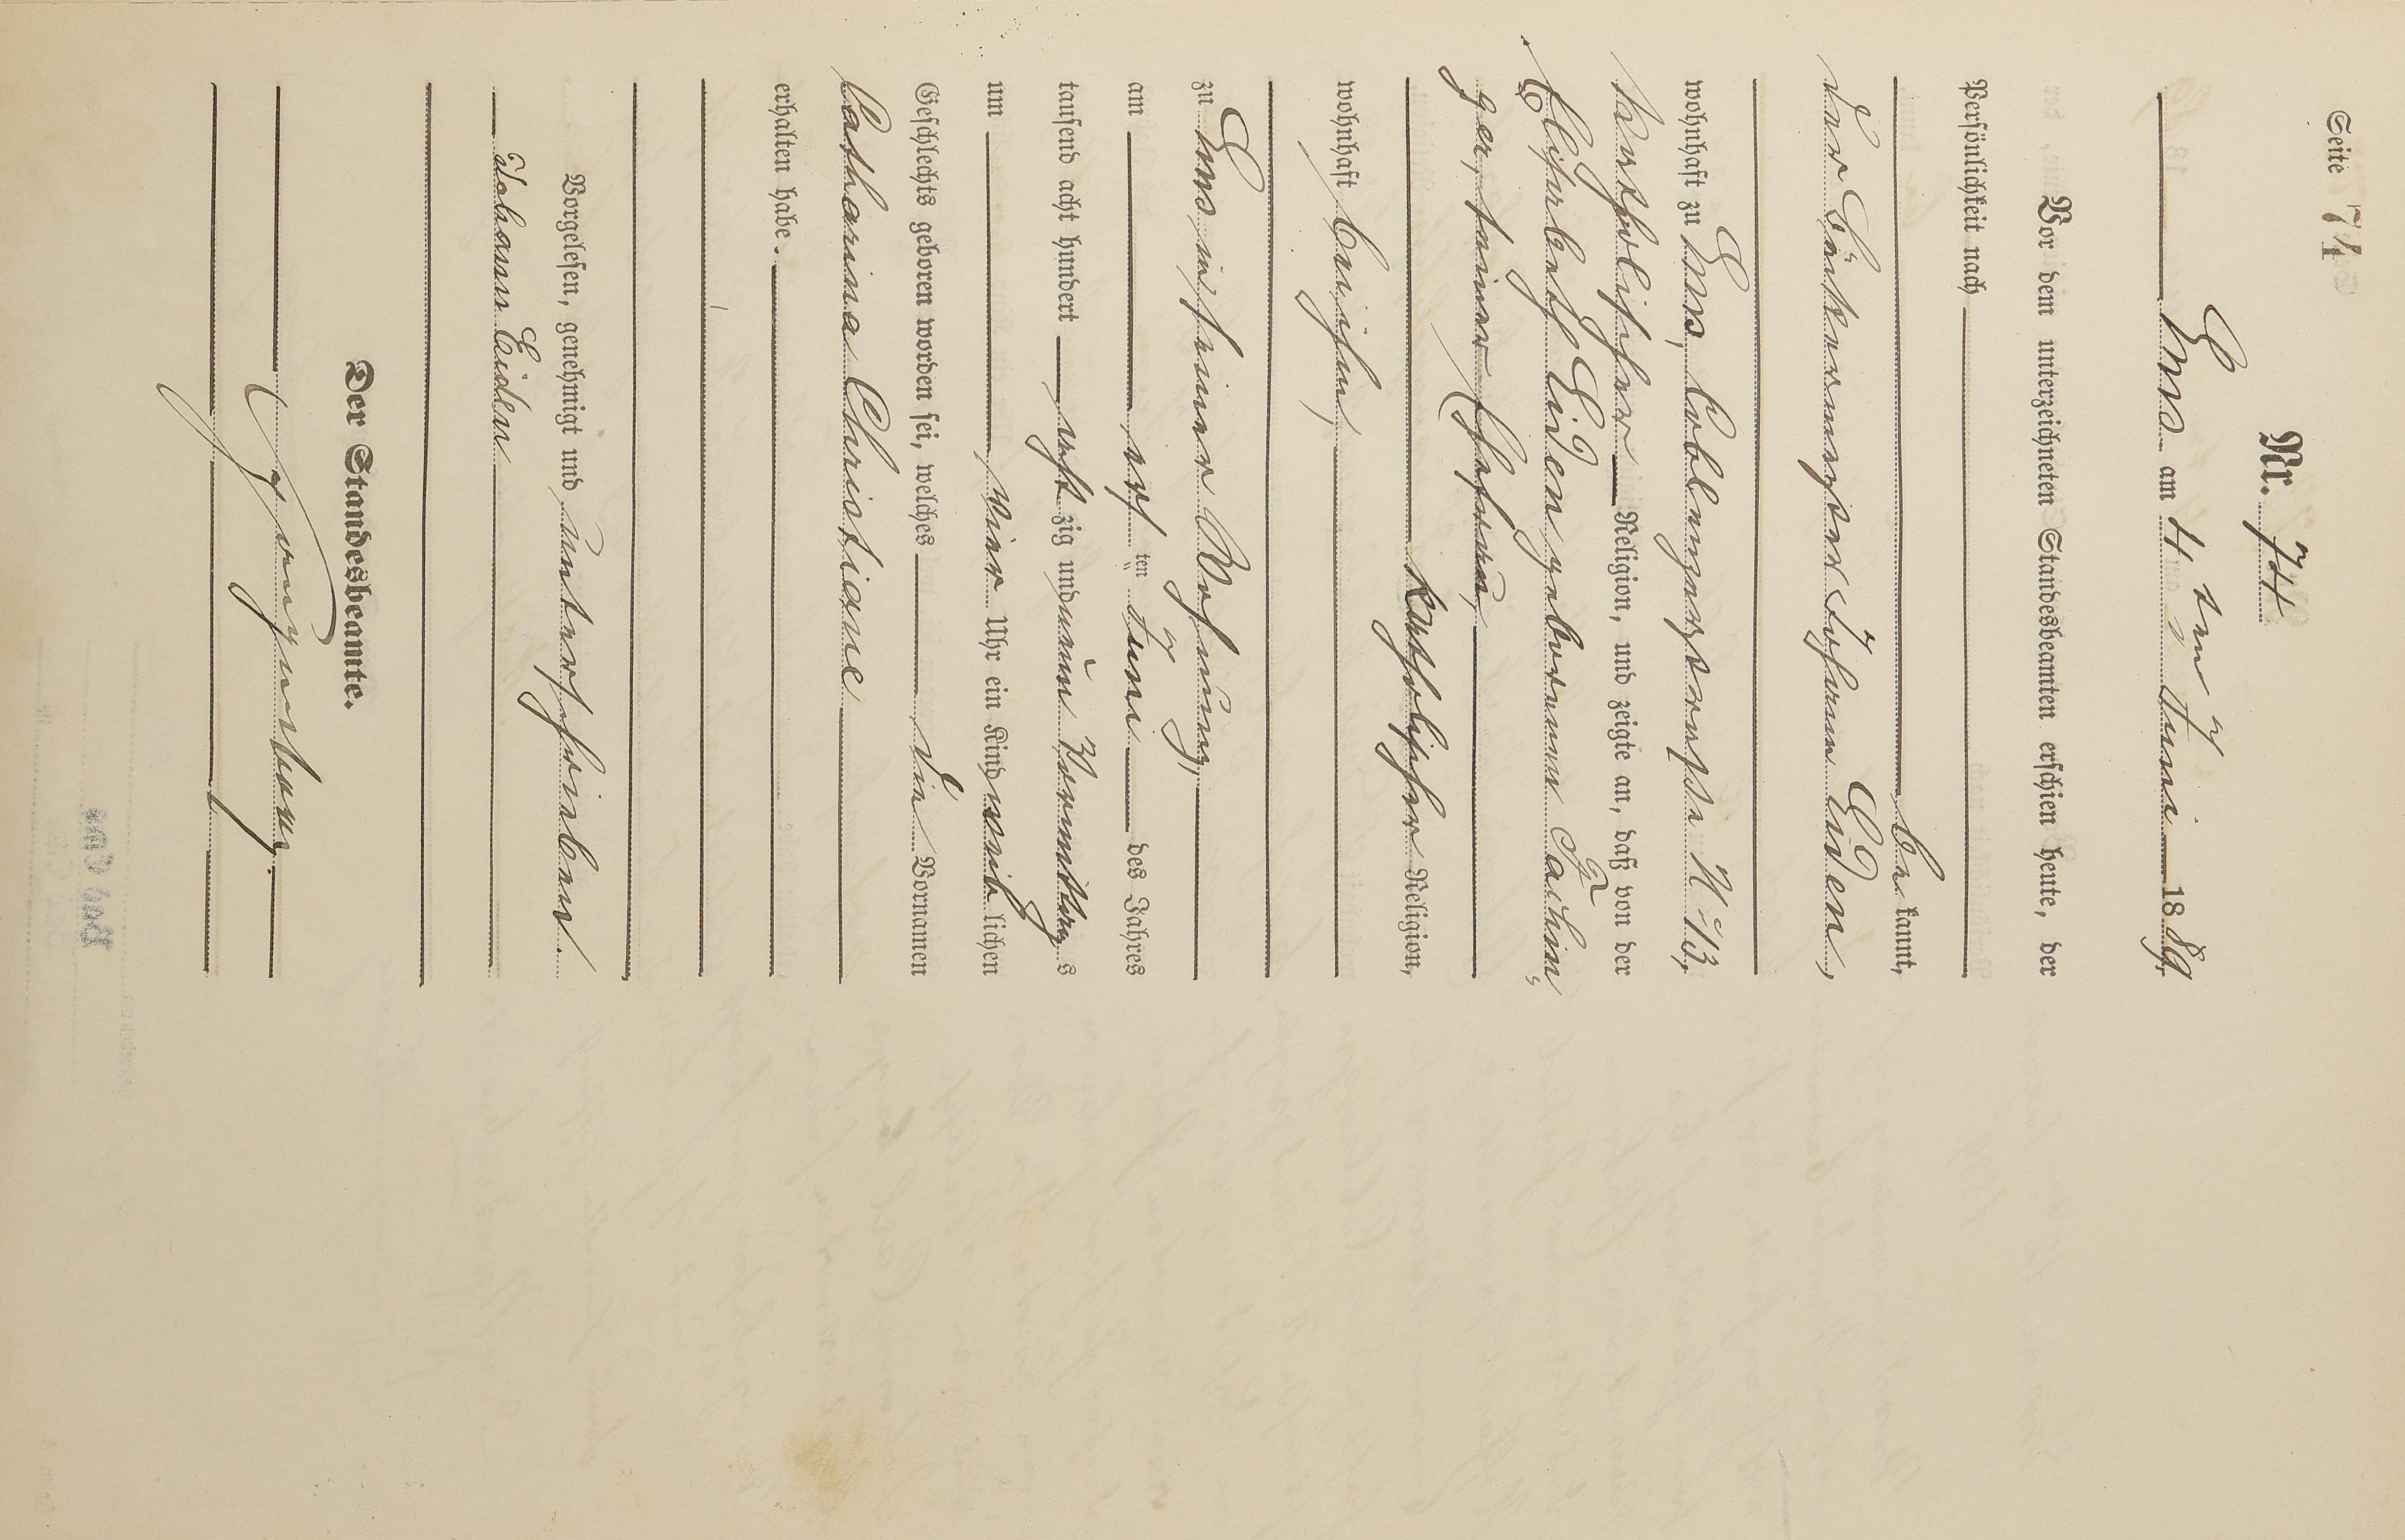 Seite 74
Nr. 74
Ems am 4 ten Juni 1889.
Vor dem unterzeichneten Standesbeamten erschien heute, der
Persönlichkeit nach
be kannt,
der Bäckermeister Johann Eiden,
wohnhaft zu Ems, Coblenzerstraße No 13,
katholischer Religion, und zeigte an, daß von der
Elisabeth Eiden geborenen Sachin-
ger, seiner Ehefrau,
katholischer Religion,
wohnhaft bei ihm,
zu Ems in seiner Wohnung,
am ersten Juni des Jahres
tausend acht hundert acht zig und neun Vormittag s
um vier Uhr ein Kind weib lichen
Geschlechts geboren worden sei, welches die Vornamen
Catharina Christiane
erhalten habe.
Vorgelesen, genehmigt und unterschrieben.
Johann Eiden
Der Standesbeamte.